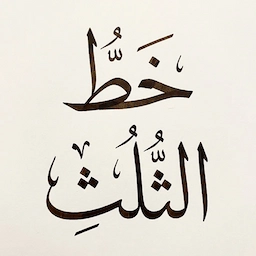 خَطُّ
الثُّلُثِ